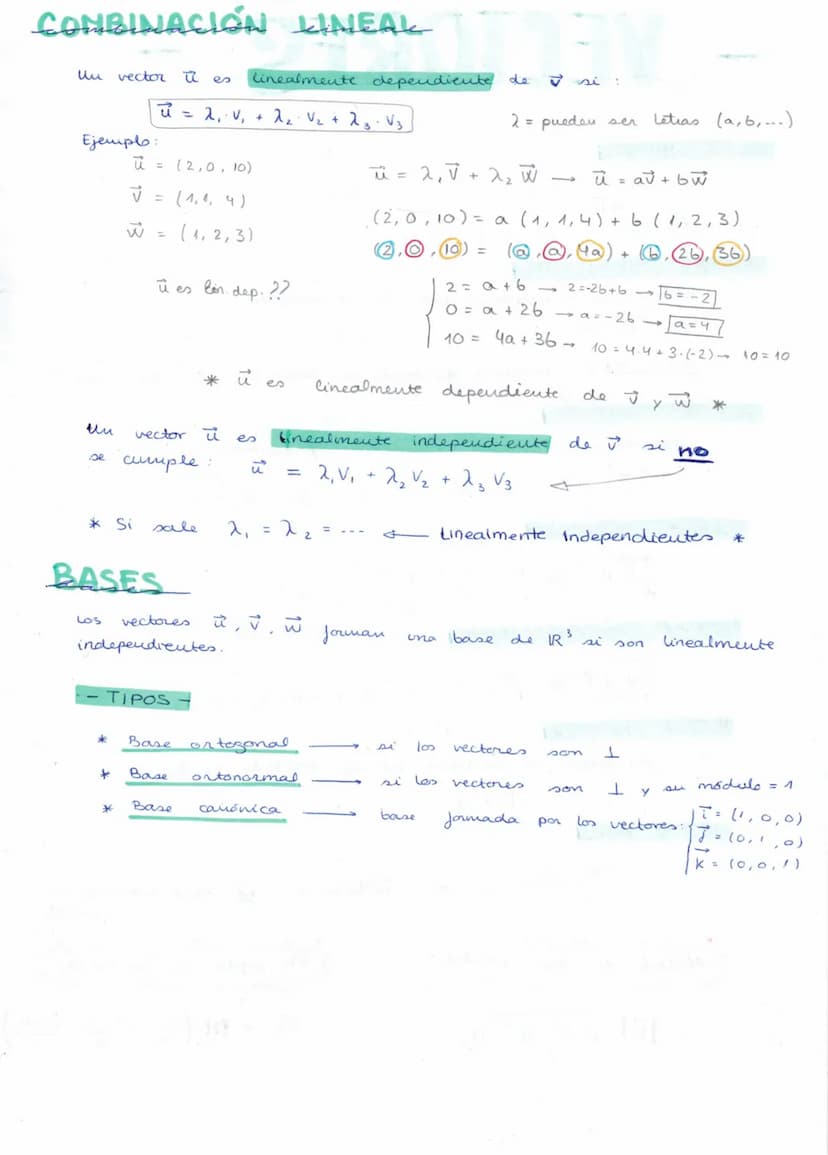 COMBINACIÓN LINEAL
Un vector u⃗ es linealmente dependiente de v⃗ si :
u⃗ = λ₁·V₁ + λ₂·V₂ + λ₃·V₃
λ = pueden ser letras (a,b,...)
Ejemplo:
u⃗ = (2,0,10)
v⃗ = (1,1,4)
w⃗ = (1,2,3)
u⃗ = λ₁v⃗ + λ₂w⃗ → u⃗ = av⃗ + bw⃗
(2,0,10) = a (1,1,4) + b (1,2,3)
(2,0,10) = (a,a,4a) + (b,2b,3b)
u⃗ es lin. dep.??
2 = a+b → 2=-2b+b → b = -2
0 = a + 2b → a=-2b → a=4
10 = 4a + 3b → 10 = 4·4 + 3·(-2) → 10 = 10
* u⃗ es linealmente dependiente de v⃗ y w⃗ *
Un vector u⃗ es linealmente independiente de v⃗ si no
se cumple : u⃗ = λ₁V₁ + λ₂V₂ + λ₃V₃
* Si sale λ₁ = λ₂ = --- ← Linealmente Independientes *
BASES
Los vectores u⃗, v⃗, w⃗ forman una base de ℝ³ si son linealmente
independientes.
- TIPOS -
* Base ortogonal → si los vectores son ⊥
* Base ortonormal → si los vectores son ⊥ y su módulo = 1
* Base canónica → base formada por los vectores: i⃗ = (1,0,0)
j⃗ = (0,1,0)
k⃗ = (0,0,1)